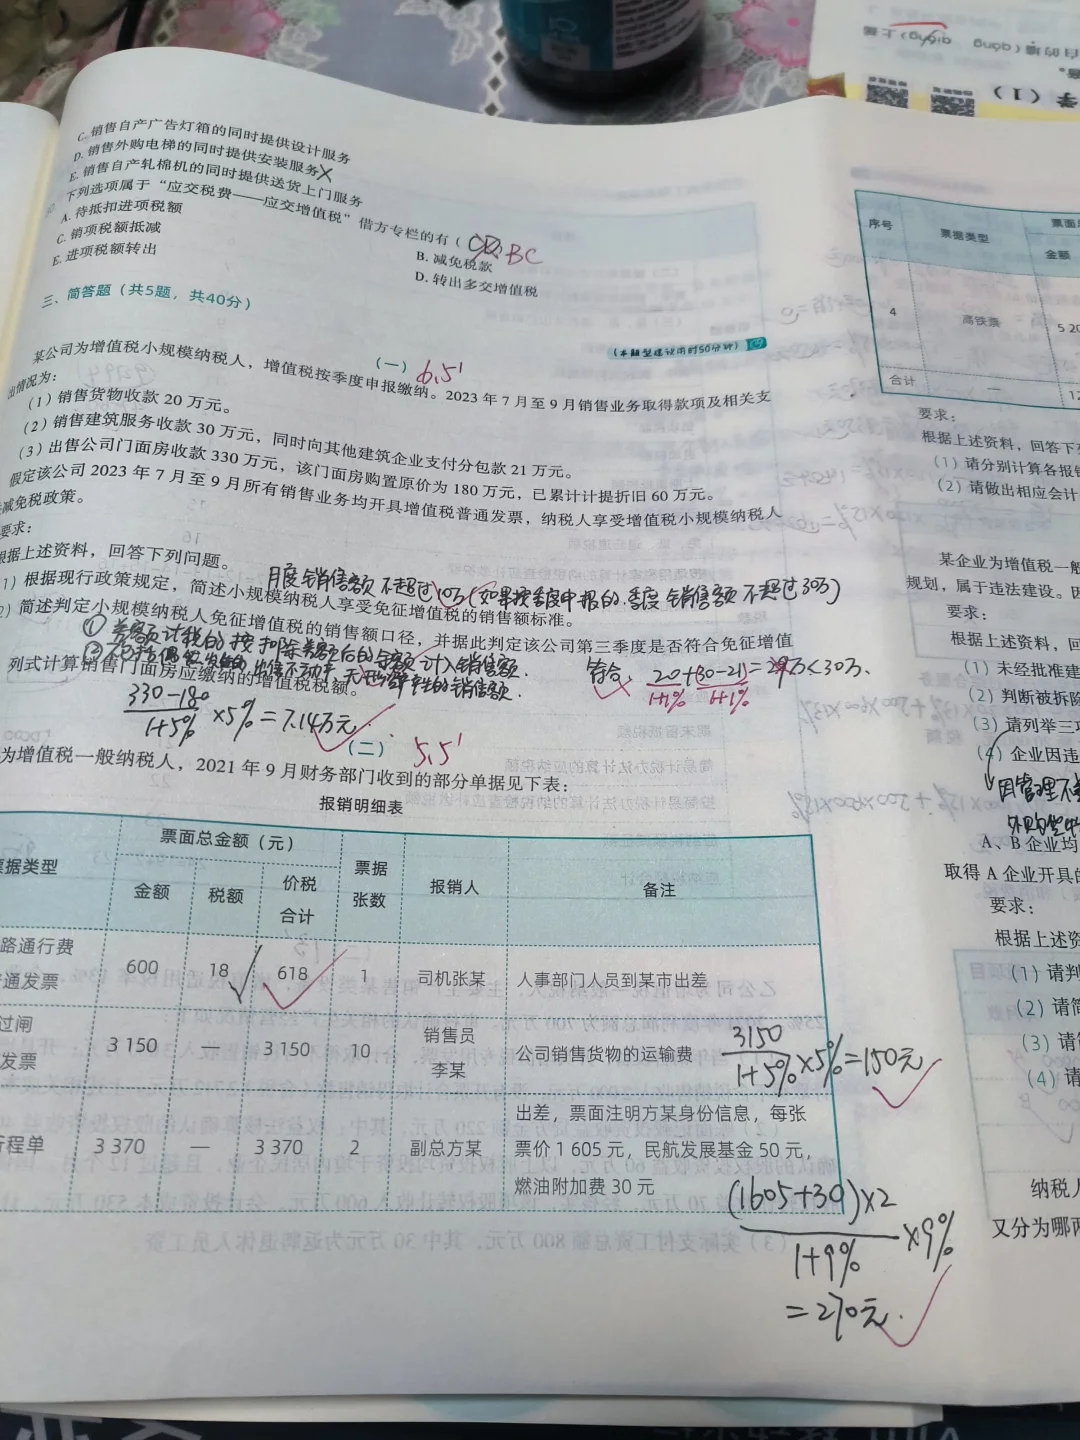 C. 销售自产广告灯箱的同时提供设计服务
D. 销售外购电梯的同时提供安装服务
E. 销售自产轧棉机的同时提供送货上门服务
下列选项属于“应交税费——应交增值税”借方专栏的有( BC
A. 待抵扣进项税额
B. 减免税款
C. 销项税额抵减
D. 转出多交增值税
E. 进项税额转出
三、简答题(共5题,共40分)
(本题型建议用时50分钟)
(一) 6.5'
某公司为增值税小规模纳税人,增值税按季度申报缴纳。2023年7月至9月销售业务取得款项及相关支
出情况为:
(1)销售货物收款20万元。
(2)销售建筑服务收款30万元,同时向其他建筑企业支付分包款21万元。
(3)出售公司门面房收款330万元,该门面房购置原价为180万元,已累计计提折旧60万元。
假定该公司2023年7月至9月所有销售业务均开具增值税普通发票,纳税人享受增值税小规模纳税人
减免税政策。
要求:
根据上述资料,回答下列问题。
1)根据现行政策规定,简述小规模纳税人享受免征增值税的销售额标准。
月度销售额不超过10万(如果按季度申报的季度销售额不超过30万)
2)简述判定小规模纳税人免征增值税的销售额口径,并据此判定该公司第三季度是否符合免征增值
①差额计税的按扣除差额后的余额计入销售额.
符合, 20+(30-21)=29万<30万.
1+1% 1+1%
列式计算销售门面房应缴纳的增值税税额。
330-180
1+5% ×5%=7.14万元.
(二) 5.5'
为增值税一般纳税人,2021年9月财务部门收到的部分单据见下表:
报销明细表
票据类型 票面总金额(元) 票据张数 报销人 备注
金额 税额 价税合计
路通行费
通发票 600 18 618 1 司机张某 人事部门人员到某市出差
过闸
发票 3 150 — 3 150 10 销售员李某 公司销售货物的运输费
3150
1+5% ×5%=150元
行程单 3 370 — 3 370 2 副总方某 出差,票面注明方某身份信息,每张
票价1 605元,民航发展基金50元,
燃油附加费30元
(1605+30)×2
1+9% ×9%
=270元.
序号 票据类型 票面
金额
4 高铁票 5 20
合计 — 12
要求:
根据上述资料,回答下
(1)请分别计算各报销
(2)请做出相应会计
某企业为增值税一般
规划,属于违法建设。因
要求:
根据上述资料,回
(1)未经批准建
(2)判断被拆除
(3)请列举三项
(4)企业因违
因管理不
A、B企业均
取得A企业开具的
要求:
根据上述资
(1)请判
(2)请简
(3)请
(4)请
纳税人
又分为哪两